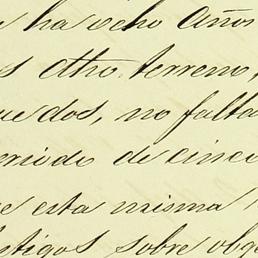 ha ocho años
otro terreno,
dos, no falta
de cinco
esta misma
sobre obge